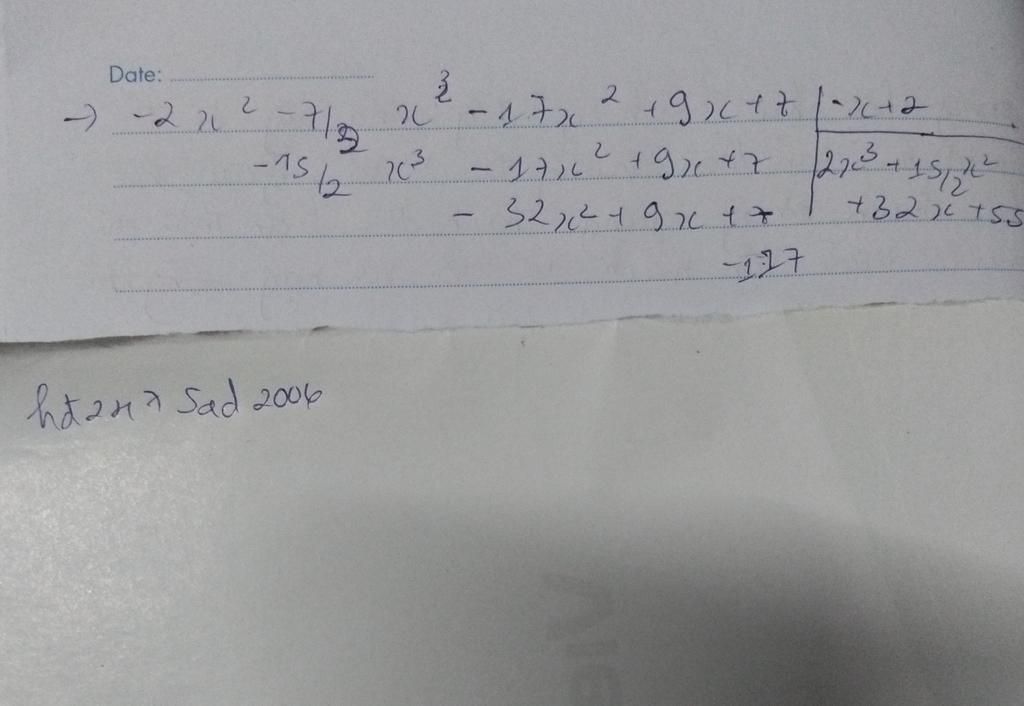 Date:
→ -2x² -7/2 x³ -17x² +9x+7 | -x+2
-15/2 x³ -17x² +9x+7 | 2x³ +15/2x²
-32x²+9x+7 | +32x+55
-117
Sad 2006